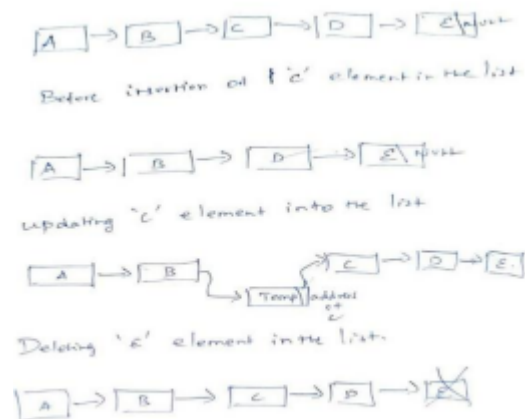 A B C D E\NULL
Before insertion of 'c' element in the list
A B D E\NULL
updating 'c' element into the list
A B C D E
Temp address
of
c
Deleting 'E' element in the list.
A B C D E